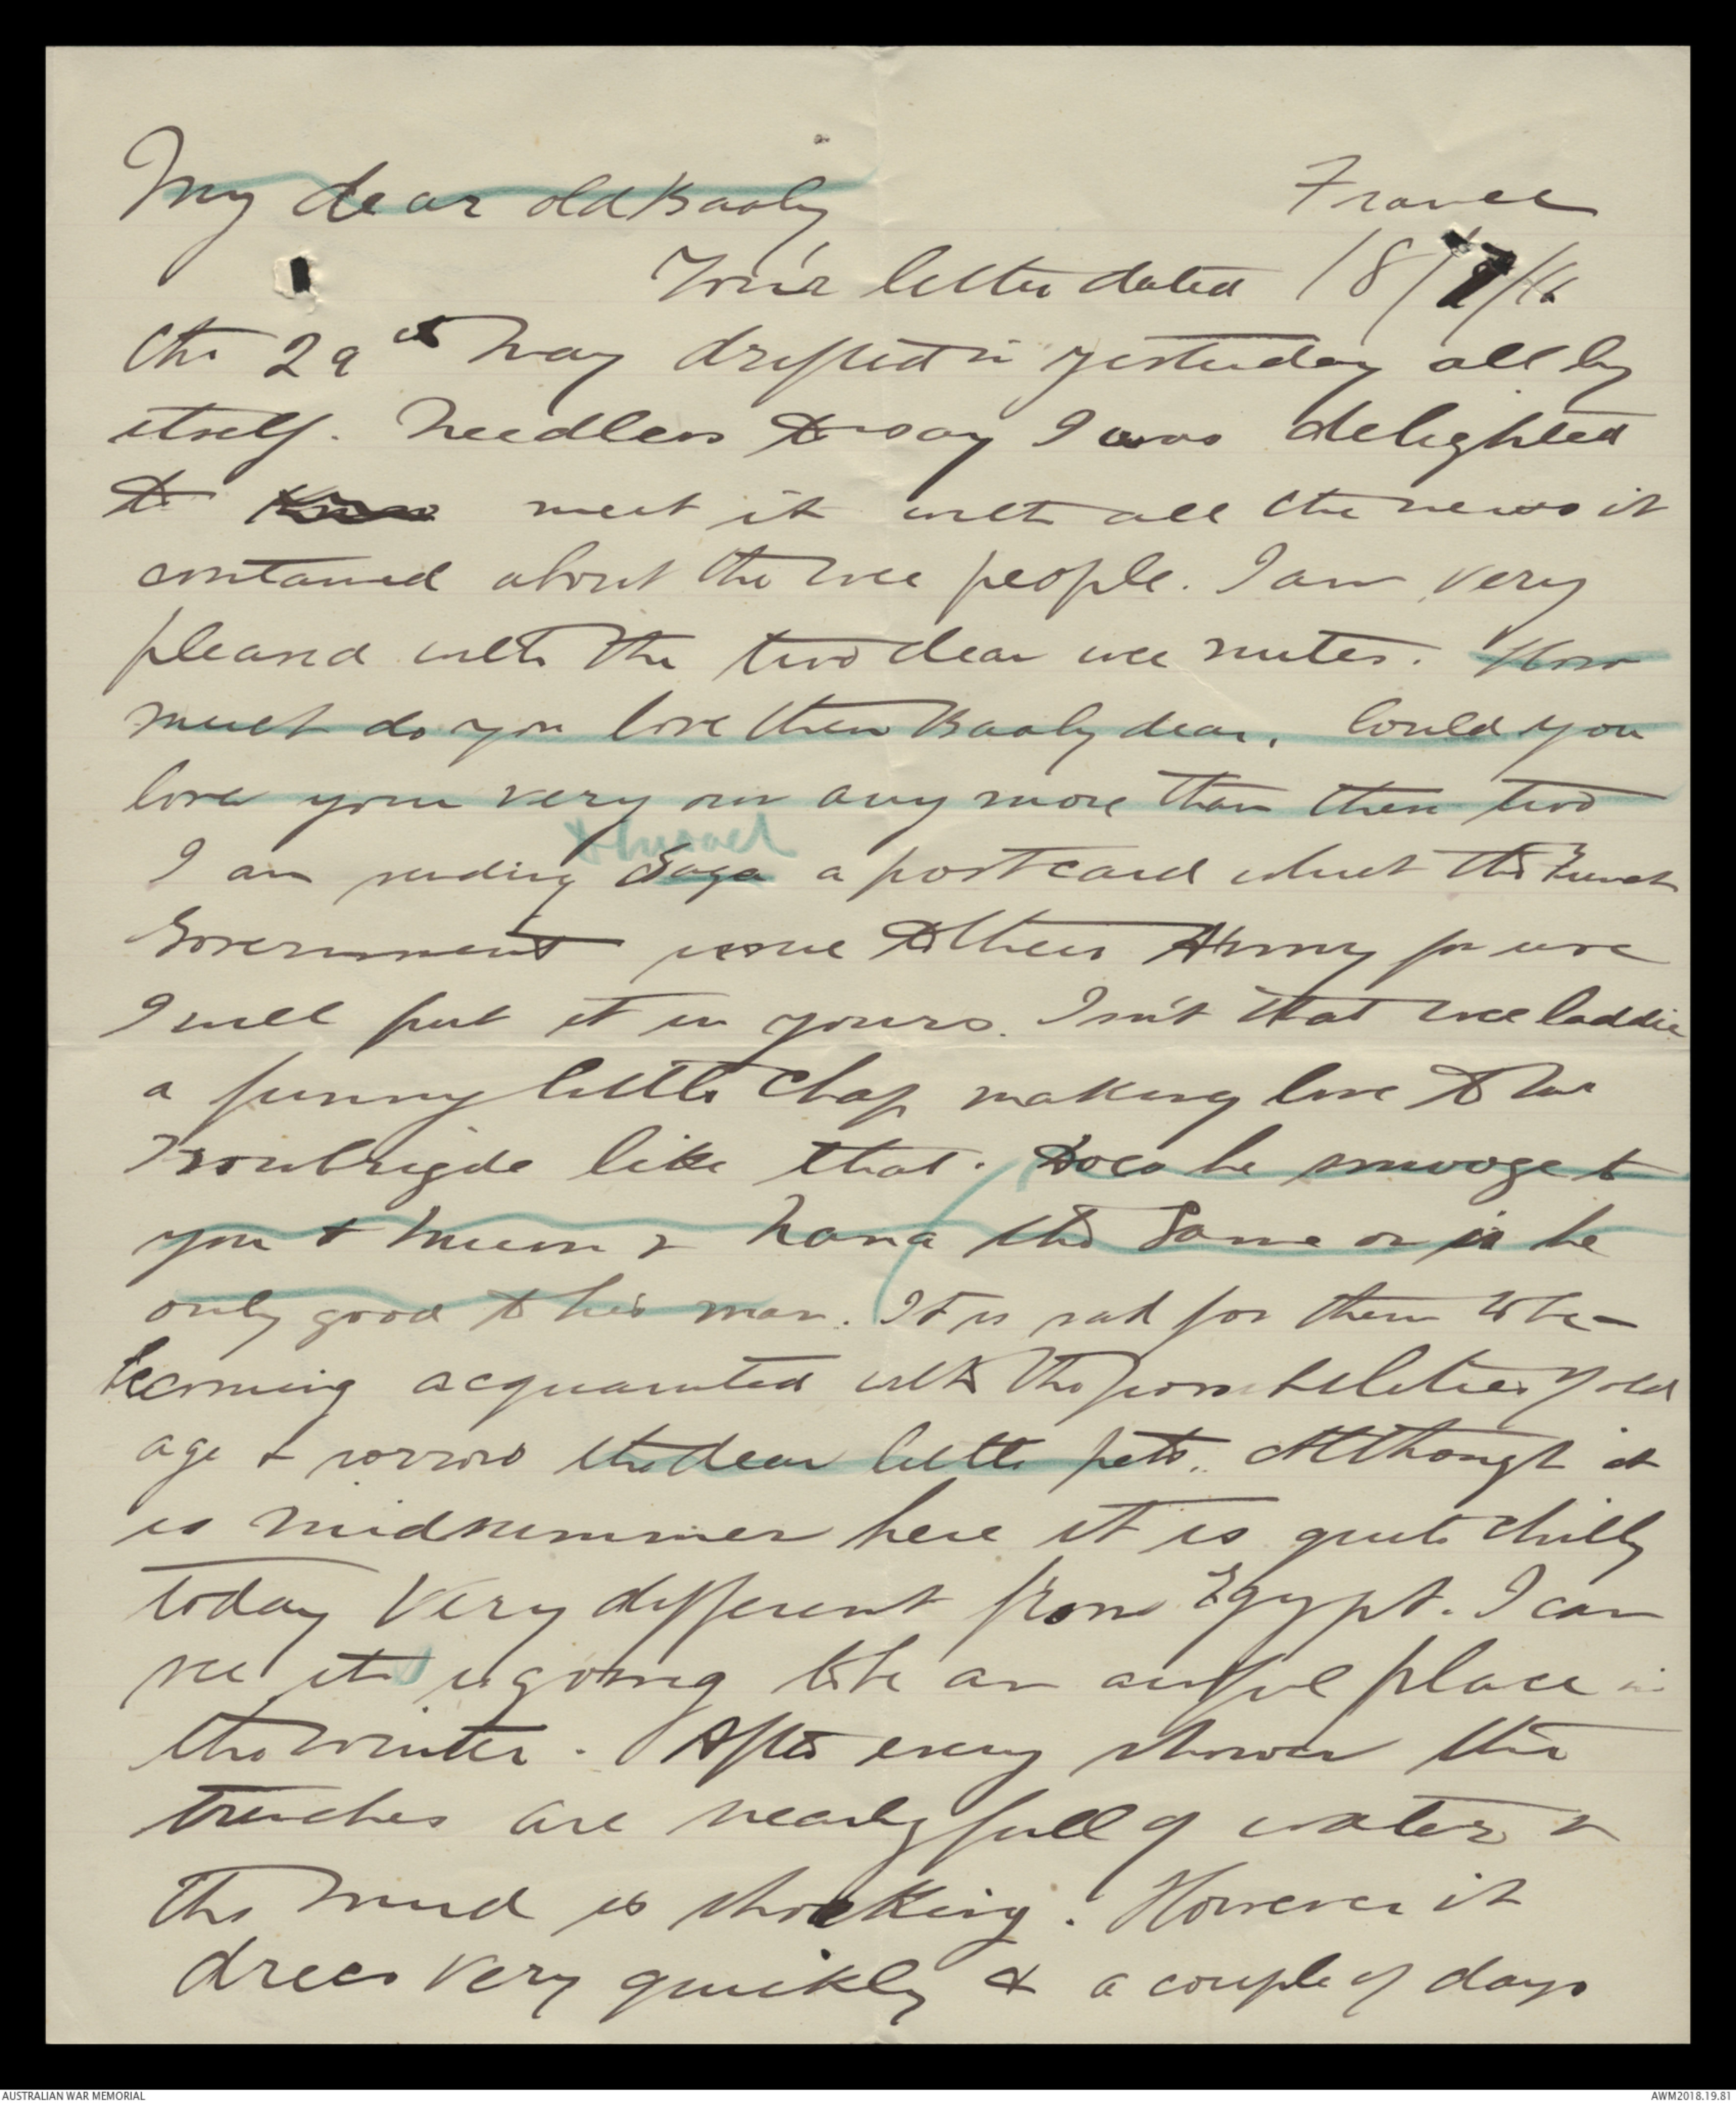 My dear old Baaly
France
Your letter dated 18/7/16
the 29th May drifted in yesterday all by
itself. Needless to say I was delighted
to meet it with all the news it
contained about the wee people. I am very
pleased with the two dear wee mites. How
much do you love them Baaly dear. Could you
love your very own any more than these two
I am sending Saga a postcard which the French
Government issue to their Army for use
I will put it in yours. Isn't that wee laddie
a funny little chap making love to
Troubrigde like that. Does he smooge to
you & Mum & Nana the same or is he
only good to his man. It is sad for them to be-
becoming acquainted with the possibilities of old
age & sorrow the dear little pets. Although it
is midsummer here it is quite chilly
today Very different from Egypt. I can
see it is going to be an awful place in
the winter. After every shower the
trenches are nearly full of water &
the mud is shocking. However it
dries very quickly & a couple of days
AUSTRALIAN WAR MEMORIAL
AWM2018.19.81